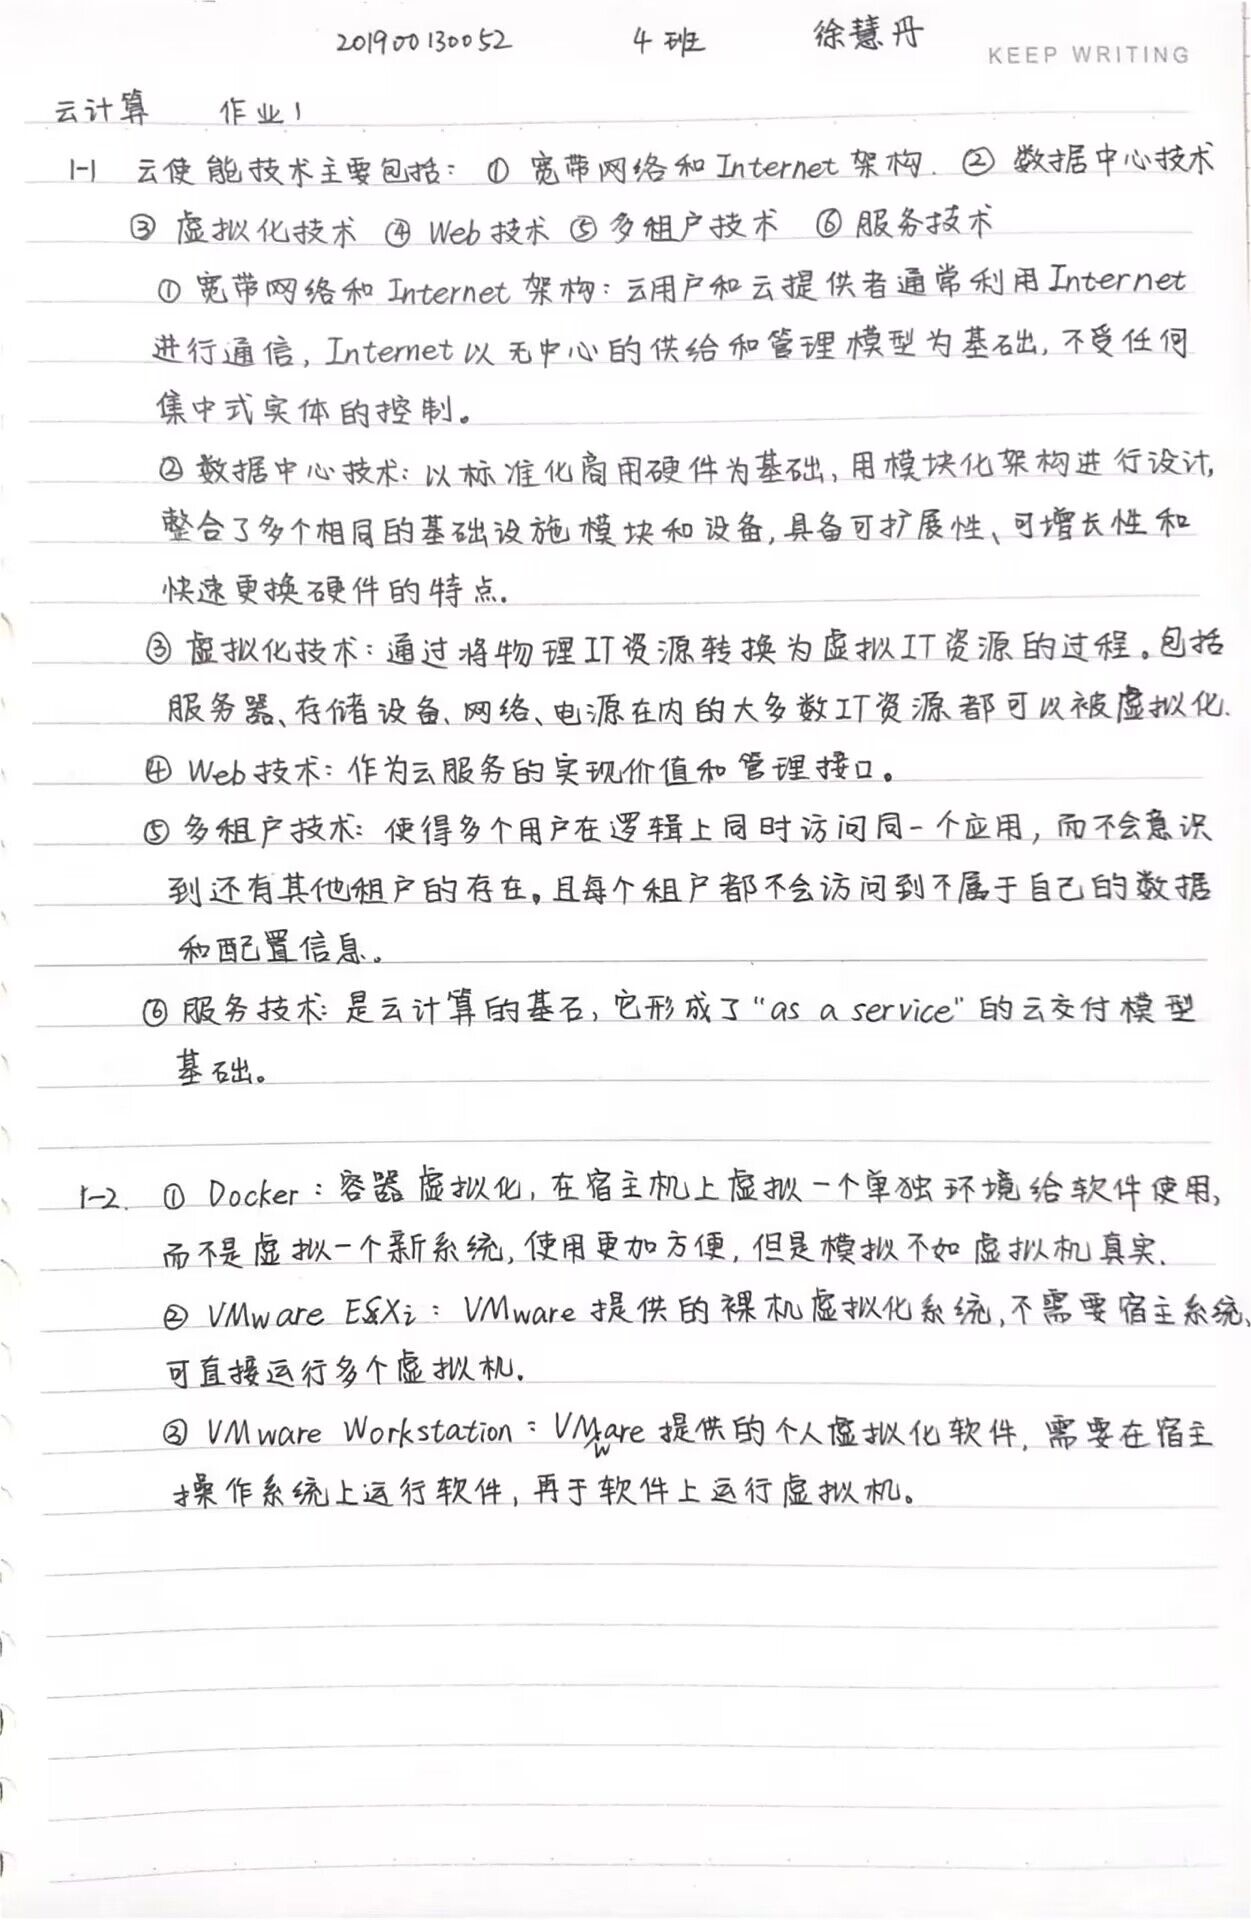 201900130052 4班 徐慧丹
KEEP WRITING
云计算 作业1
1-1 云使能技术主要包括: ① 宽带网络和Internet架构. ② 数据中心技术
③ 虚拟化技术 ④ Web技术 ⑤ 多租户技术 ⑥ 服务技术
① 宽带网络和Internet架构: 云用户和云提供者通常利用Internet
进行通信, Internet以无中心的供给和管理模型为基础, 不受任何
集中式实体的控制。
② 数据中心技术: 以标准化商用硬件为基础, 用模块化架构进行设计,
整合了多个相同的基础设施模块和设备, 具备可扩展性、可增长性和
快速更换硬件的特点.
③ 虚拟化技术: 通过将物理IT资源转换为虚拟IT资源的过程。包括
服务器、存储设备、网络、电源在内的大多数IT资源都可以被虚拟化.
④ Web技术: 作为云服务的实现价值和管理接口。
⑤ 多租户技术: 使得多个用户在逻辑上同时访问同一个应用, 而不会意识
到还有其他租户的存在。且每个租户都不会访问到不属于自己的数据
和配置信息。
⑥ 服务技术: 是云计算的基石, 它形成了"as a service"的云交付模型
基础。
1-2. ① Docker: 容器虚拟化, 在宿主机上虚拟一个单独环境给软件使用,
而不是虚拟一个新系统, 使用更加方便, 但是模拟不如虚拟机真实.
② VMware ESXi: VMware提供的裸机虚拟化系统, 不需要宿主系统,
可直接运行多个虚拟机.
③ VMware Workstation: VMware提供的个人虚拟化软件, 需要在宿主
操作系统上运行软件, 再于软件上运行虚拟机。